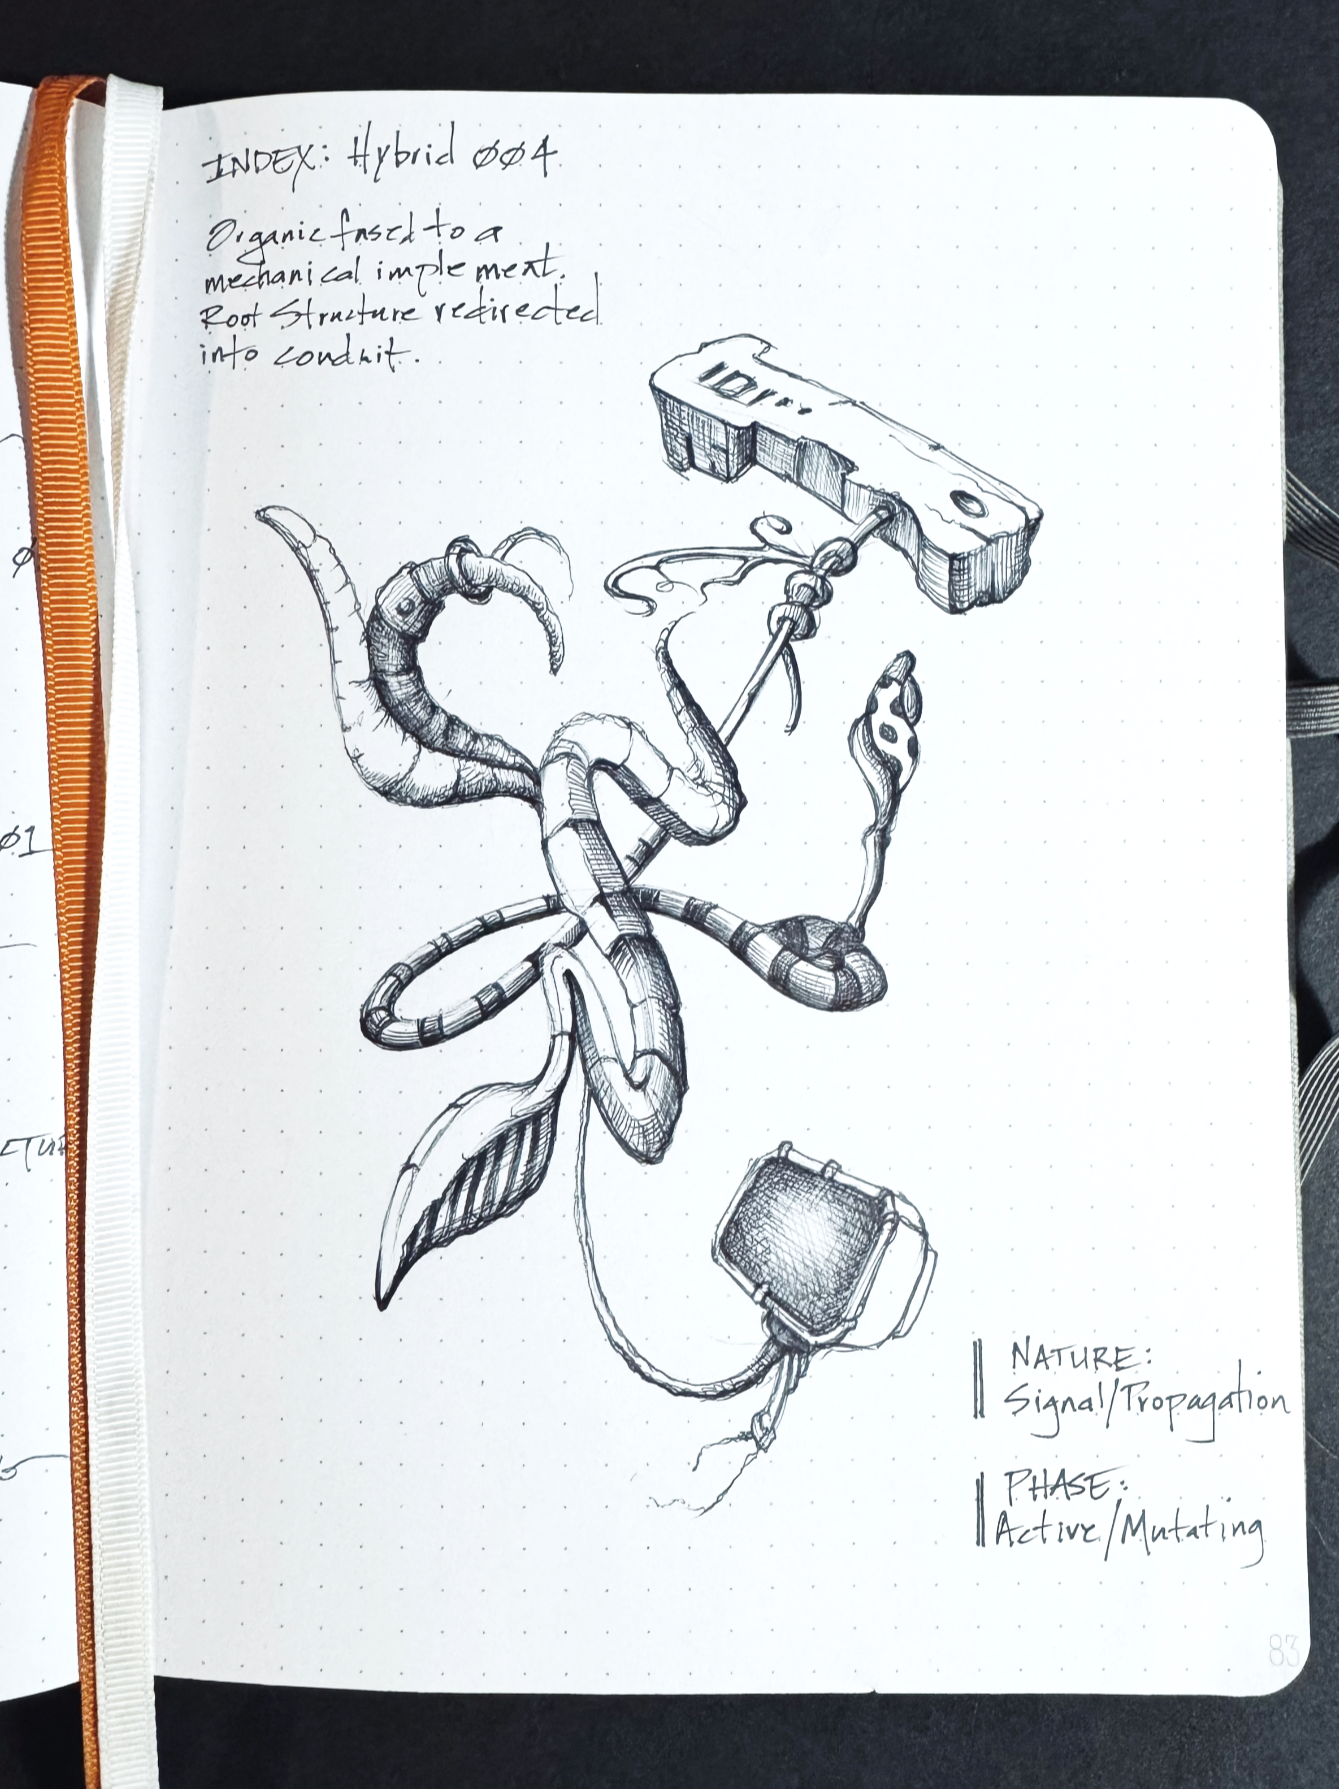 INDEX: Hybrid ØØ4
Organic fused to a
mechanical implement.
Root Structure redirected
into conduit.
NATURE:
Signal/Propagation
PHASE:
Active/Mutating
83
Ø1
CTUR